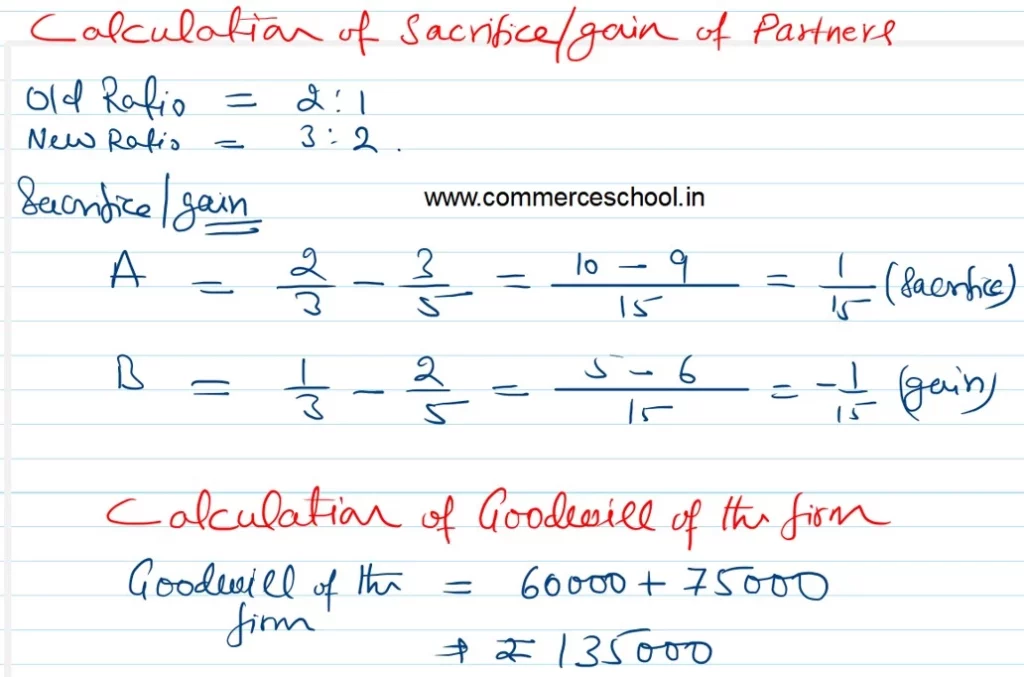 Calculation of Sacrifice/gain of Partners
Old Ratio = 2:1
New Ratio = 3:2.
Sacrifice/gain
www.commerceschool.in
A = 2/3 - 3/5 = 10 - 9/15 = 1/15 (Sacrifice)
B = 1/3 - 2/5 = 5 - 6/15 = -1/15 (gain)
Calculation of Goodwill of the firm
Goodwill of the firm = 60000 + 75000
⇒ ₹ 135000